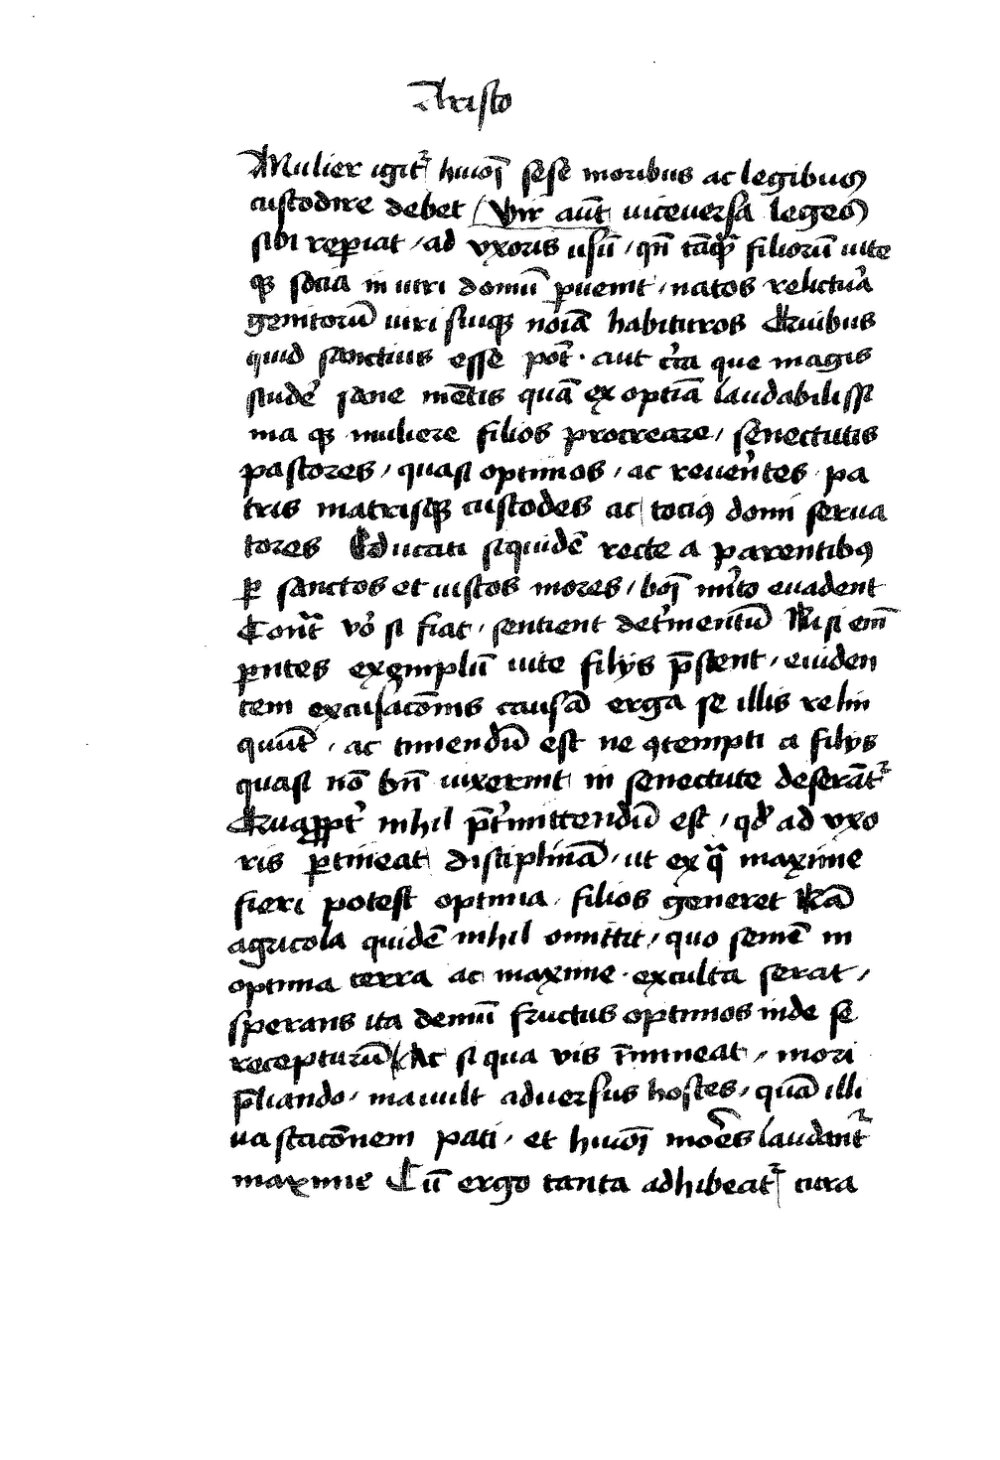 Aristo
Mulier igit᷑ huiōi sese moribus ac legibus
custodire debet / Vir aūt uiceuersa leges
sibi reperiat / ad vxoris usū / qn̄ tāq̄ᷓ filiorū uite
qꝫ socia in uiri domū ꝑuenit / natos relictura
genitorū uiri suiqꝫ noīa habituros Quibus
quid sanctius esse pot᷑ · aut c̄ca que magis
studet᷑ sane mētis quā ex optīa laudabilissi
ma qꝫ muliere filios procreare / senectutis
pastores / quasi optimos / ac reuer̄ntes pa
tris matrisqꝫ custodes ac tociꝰ domi serua
tores Educati siquidē recte a parentibꝰ
ꝑ sanctos et iustos mores / boī mr̄ito euadent
Contᷓ vo᷑ si fiat / sentient det᷑mentū Nisi em̄
pn̄tes exemplū uite filijs p̄stent / euiden
tem excusacōnis causā erga se illis relin
quūt / ac timendū est ne ꝯtempti a filijs
quasi nō bn̄ uixerint in senectute deserāt᷑
Quapp̱t᷑ nihil p̄t᷑mittendū est / qd̛ ad vxo
ris ꝑtineat disciplinā / ut ex qᷓ maxime
fieri potest optima / filios generet Nā
agricola quidē nihil omittit / quo semē in
optima terra ac maxime · exculta serat /
sperans ita demū fructus optimos inde se
recepturū / Ac si qua vis īmineat / mori
p̄liando / mauult aduersus hostes / quā illi
uastacōnem pati / et huiōi mores laudant᷑
maxime Cū ergo tanta adhibeat᷑ cura